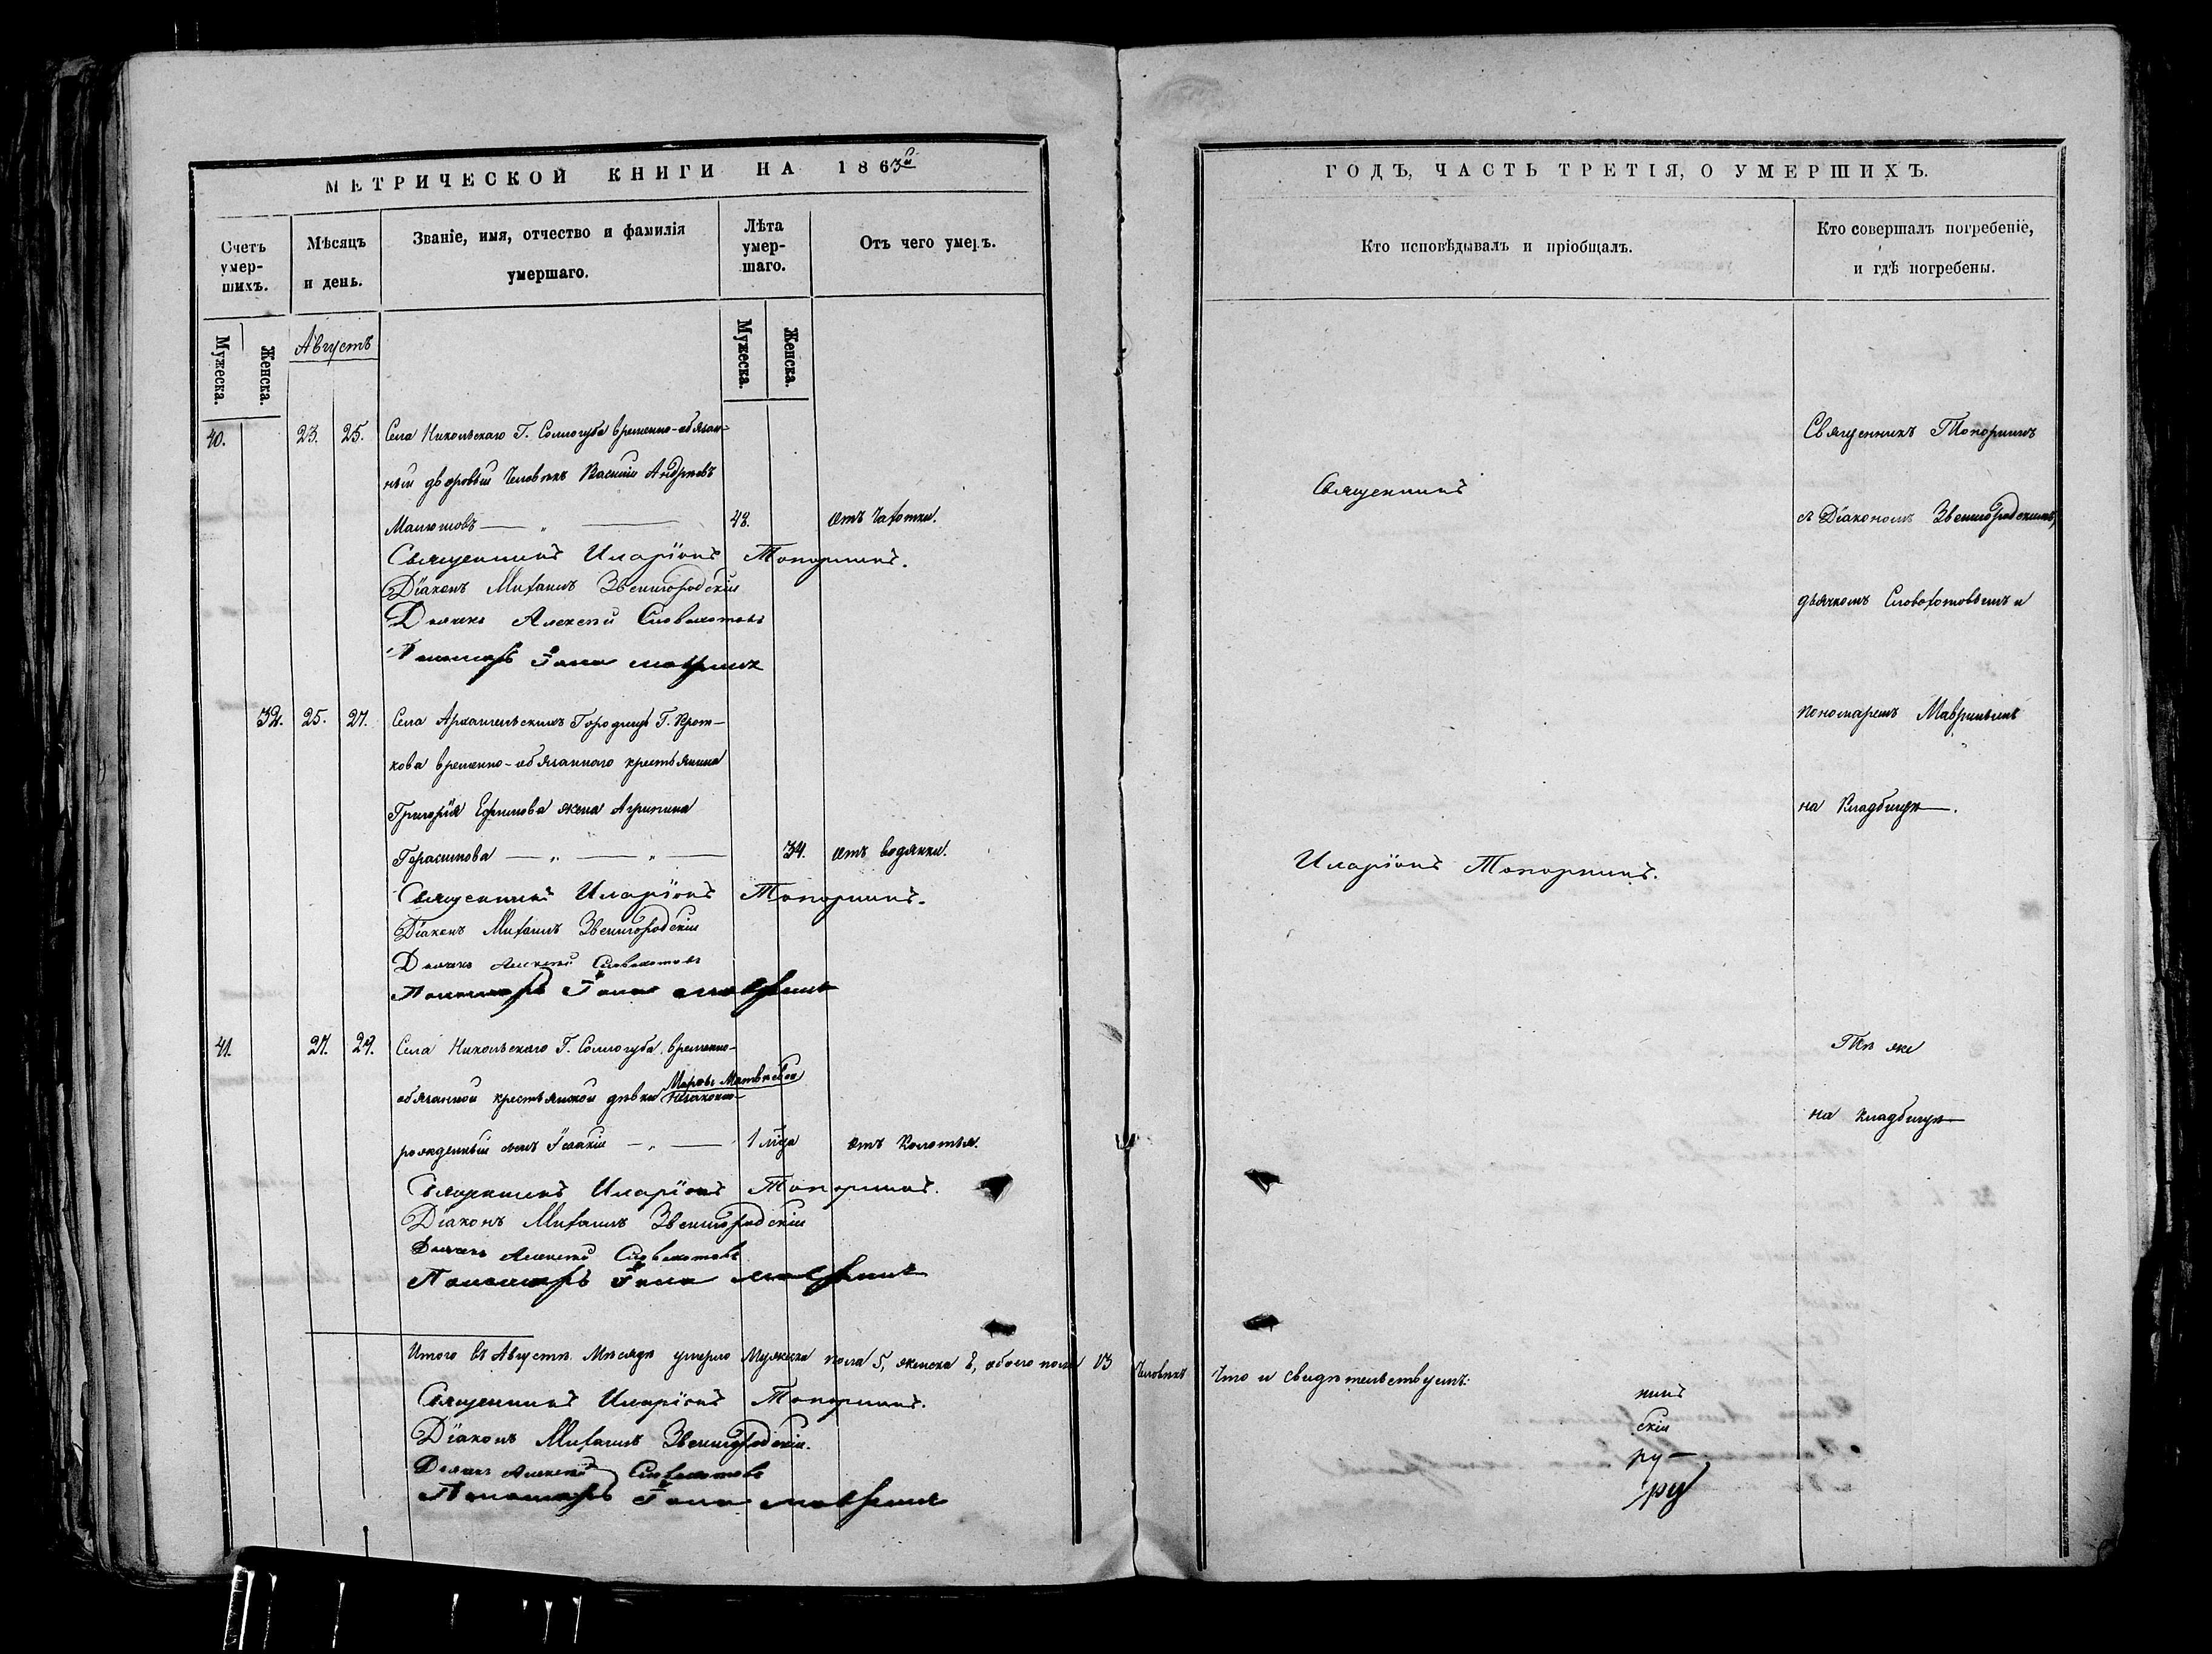 МЕТРИЧЕСКОЙ КНИГИ НА 1863й
Счетъ умер-шихъ.
Мѣсяцъ и день.
Званіе, имя, отчество и фамилія
умершаго.
Лѣта умер-шаго.
Отъ чего умеръ.
Мужеска.
Женска.
Августъ
Мужеска.
Женска.
40. 23. 25. Села Никольскаго Г. Соллогуба временно-обязан-
ный дворовый человѣкъ Василій Андреевъ
48. отъ чахотки.
Священникъ Иларіонъ Топорнинъ.
Діаконъ Михаилъ Звенигородскій
Дьячекъ Алексѣй Словохотовъ
Пономарь Іона Мавринъ
32. 25. 27. Села Архангельскихъ Городищъ Г. Крот-
кова временно-обязаннаго крестьянина
Григорія Ефимова жена Агрипина
Герасимова 34. отъ водянки.
Священникъ Иларіонъ Топорнинъ.
Діаконъ Михаилъ Звенигородскій
Дьячекъ Алексѣй Словохотовъ
Пономарь Іона Мавринъ
41. 27. 29. Села Никольскаго Г. Соллогуба временно-
обязанной крестьянской дѣвки Марѳы Матвѣевой незаконно-
рожденный сынъ Исаакій 1 мца отъ колотья.
Священникъ Иларіонъ Топорнинъ.
Діаконъ Михаилъ Звенигородскій
Дьячекъ Алексѣй Словохотовъ
Пономарь Іона Мавринъ
Итого въ Августѣ Мѣсяцѣ умерло Мужеска пола 5, женска 8, обоего пола 13 человѣкъ Что и свидѣтельствуемъ:
Священникъ Иларіонъ Топорнинъ.
Діаконъ Михаилъ Звенигородскій.
Дьячекъ Алексѣй Словохотовъ
Пономарь Іона Мавринъ
ГОДЪ, ЧАСТЬ ТРЕТІЯ, О УМЕРШИХЪ.
Кто исповѣдывалъ и пріобщалъ.
Кто совершалъ погребеніе,
и гдѣ погребены.
Священникъ
Иларіонъ Топорнинъ.
Священникъ Топорнинъ
съ Діакономъ Звенигородскимъ,
дьячкомъ Словохотовымъ и
пономаремъ Мавринымъ
на кладбищѣ.
Тѣ же
на кладбищѣ
нинъ
скій
ру
ру